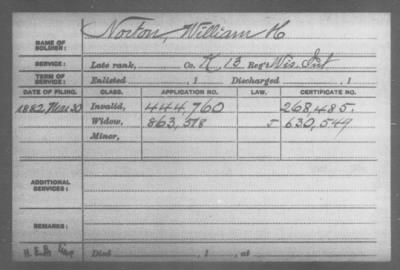 Norton, William H
NAME OF SOLDIER:
SERVICE: Late rank, Co. K, 13 Reg't Wis. Inf
TERM OF SERVICE: Enlisted , 1 Discharged , 1
DATE OF FILING. CLASS. APPLICATION NO. LAW. CERTIFICATE NO.
1882, Mar 30 Invalid, 444,760 268,485.
Widow, 863,578 J 630,549
Minor,
ADDITIONAL SERVICES:
REMARKS:
Died , 1 , at